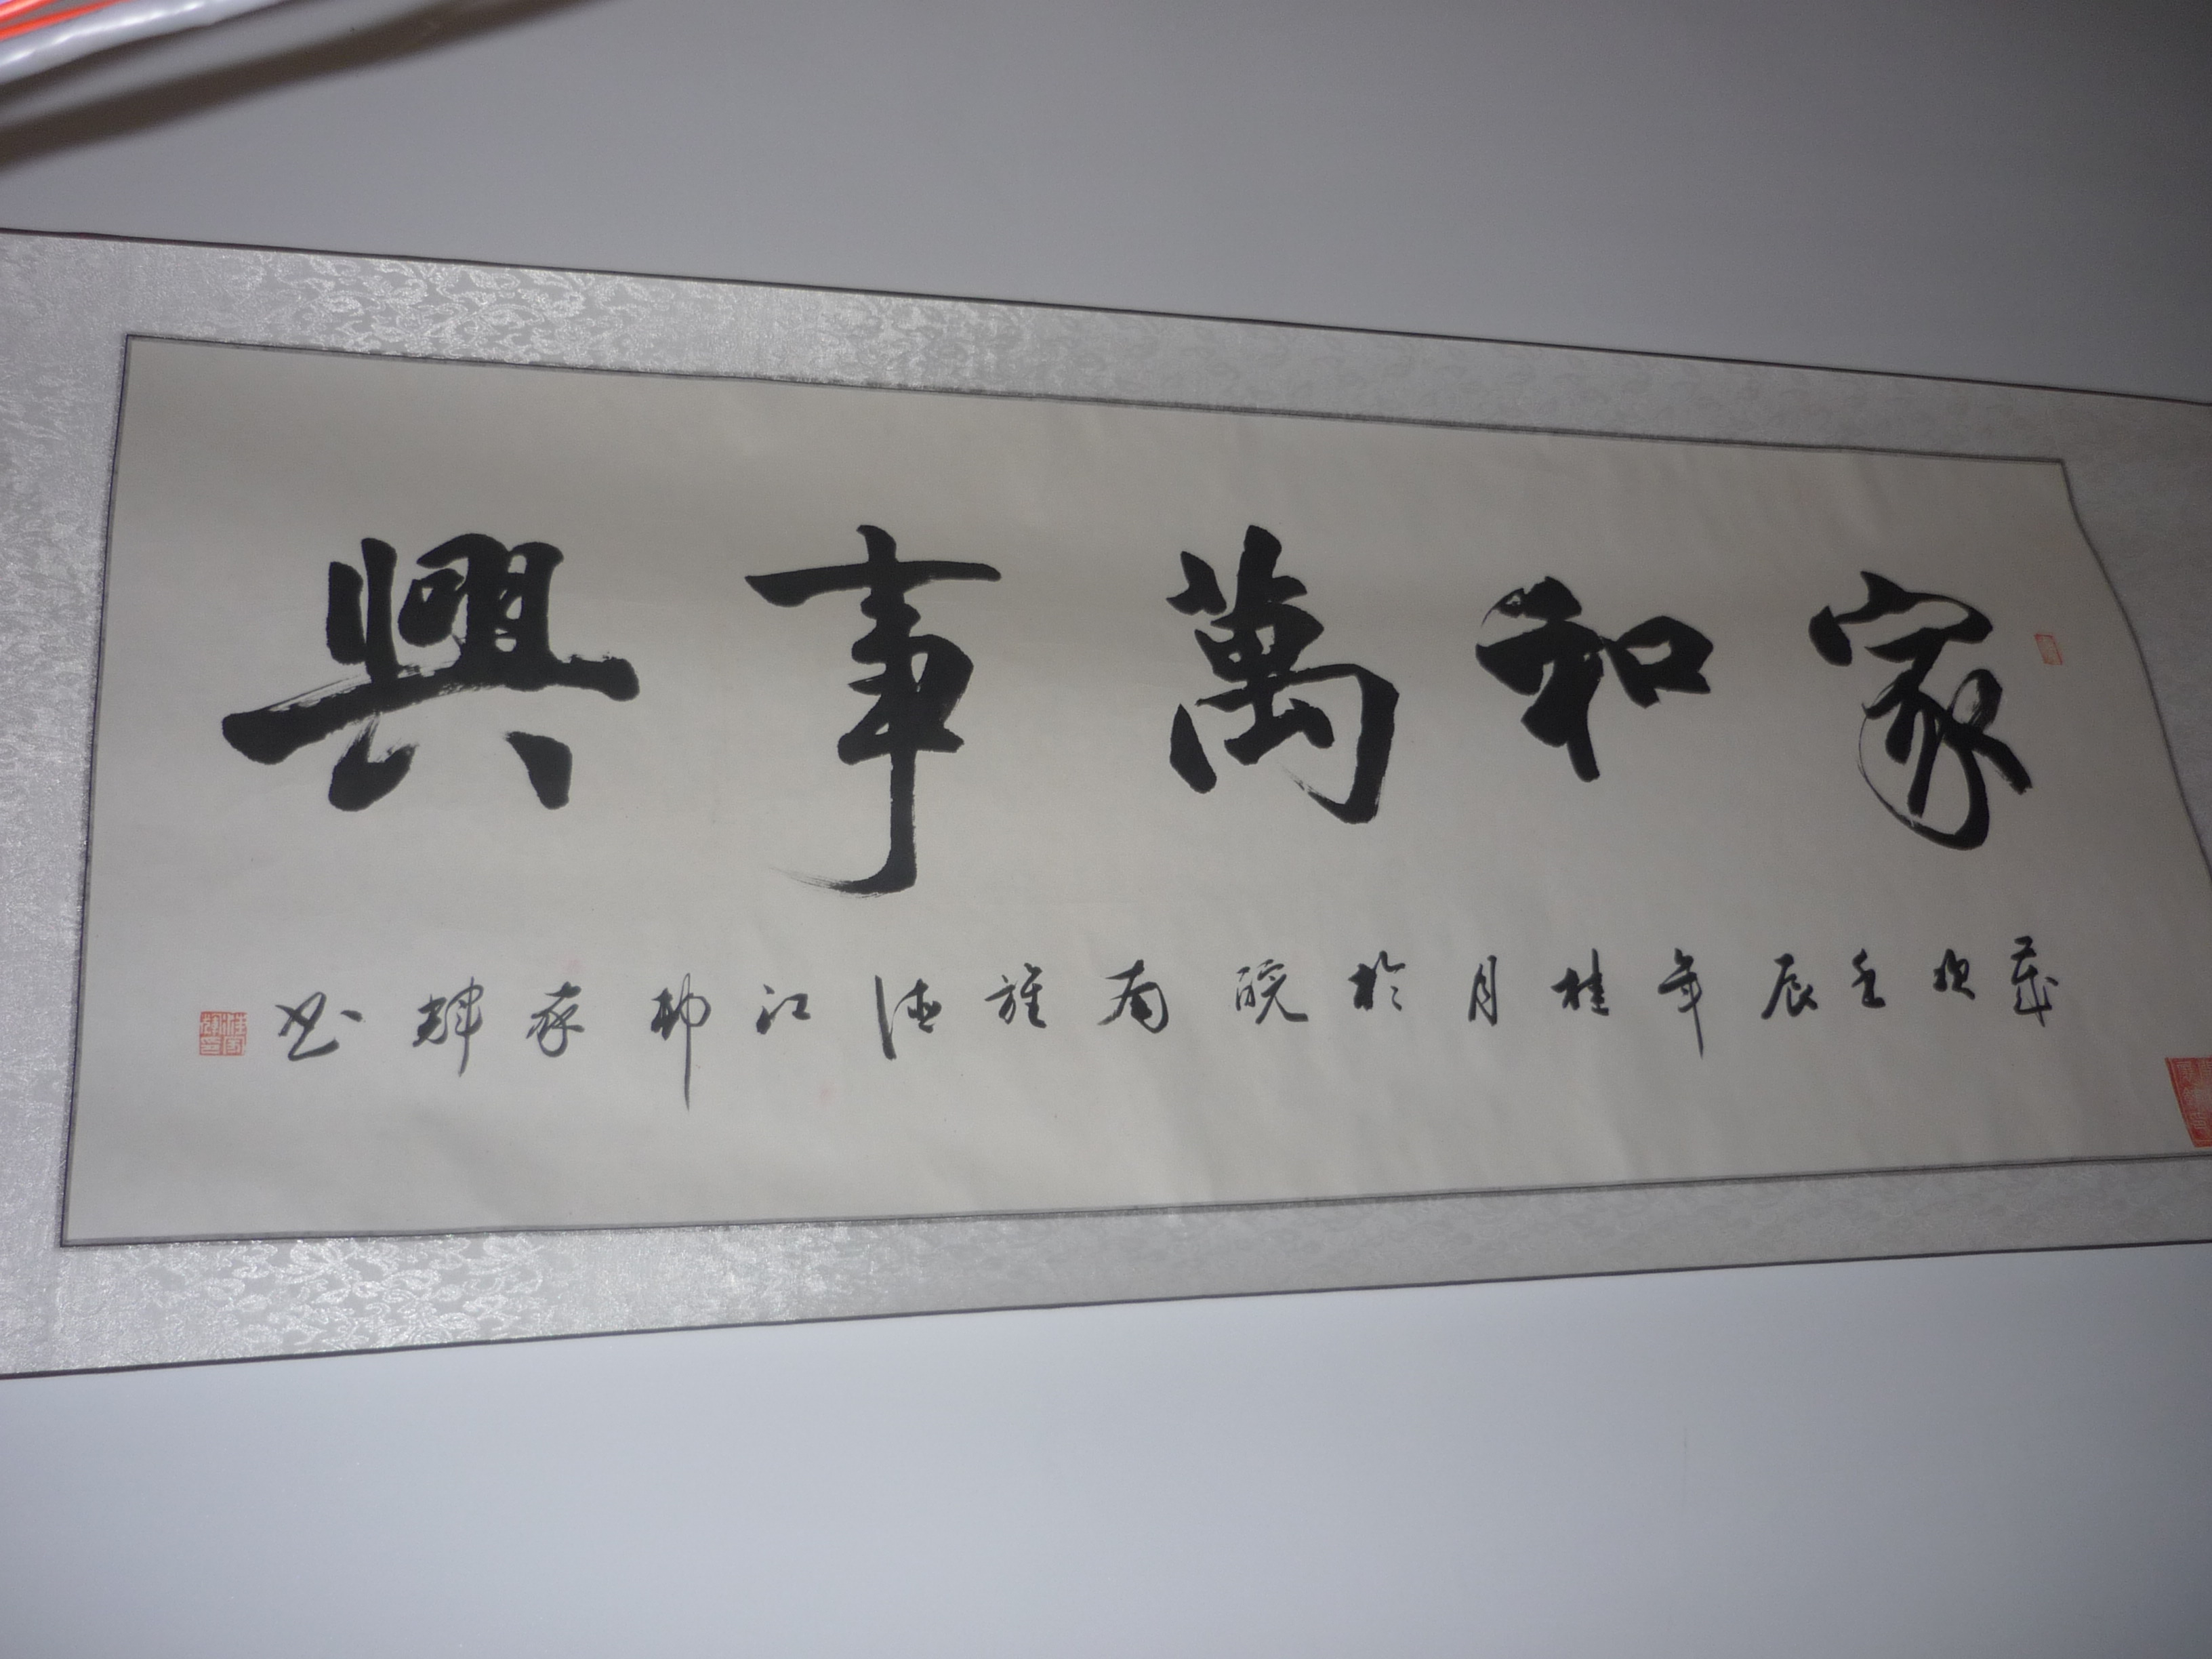 家和萬事興
歲次壬辰年桂月於皖南旌德江村存輝書